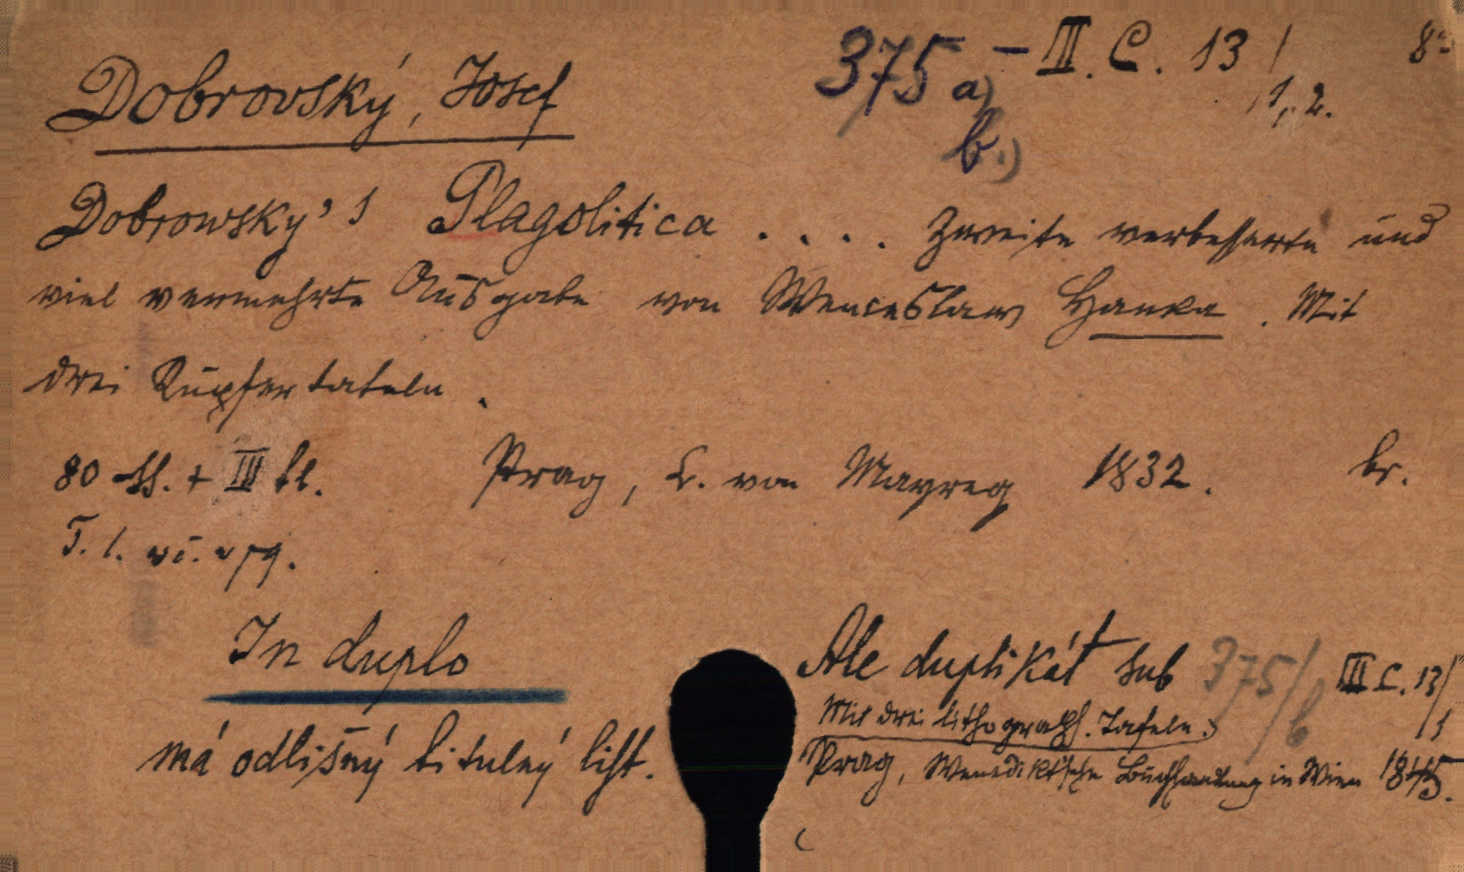 375 a) – III. C. 13/1, 2. 8°
b.)
Dobrovský, Josef
Dobrowsky's Glagolitica .... Zweite verbesserte und
viel vermehrte Ausgabe von Wenceslaw Hanka. Mit
drei Kupfertafeln.
80 ss. + III tl. Prag, 1832. br.
In duplo
má odlišný titulný list.
Ale duplikát sub 375/b III C. 13/1
Mit drei lithograph. Tafeln.
Prag, Buchhandlung in Wien 1845.